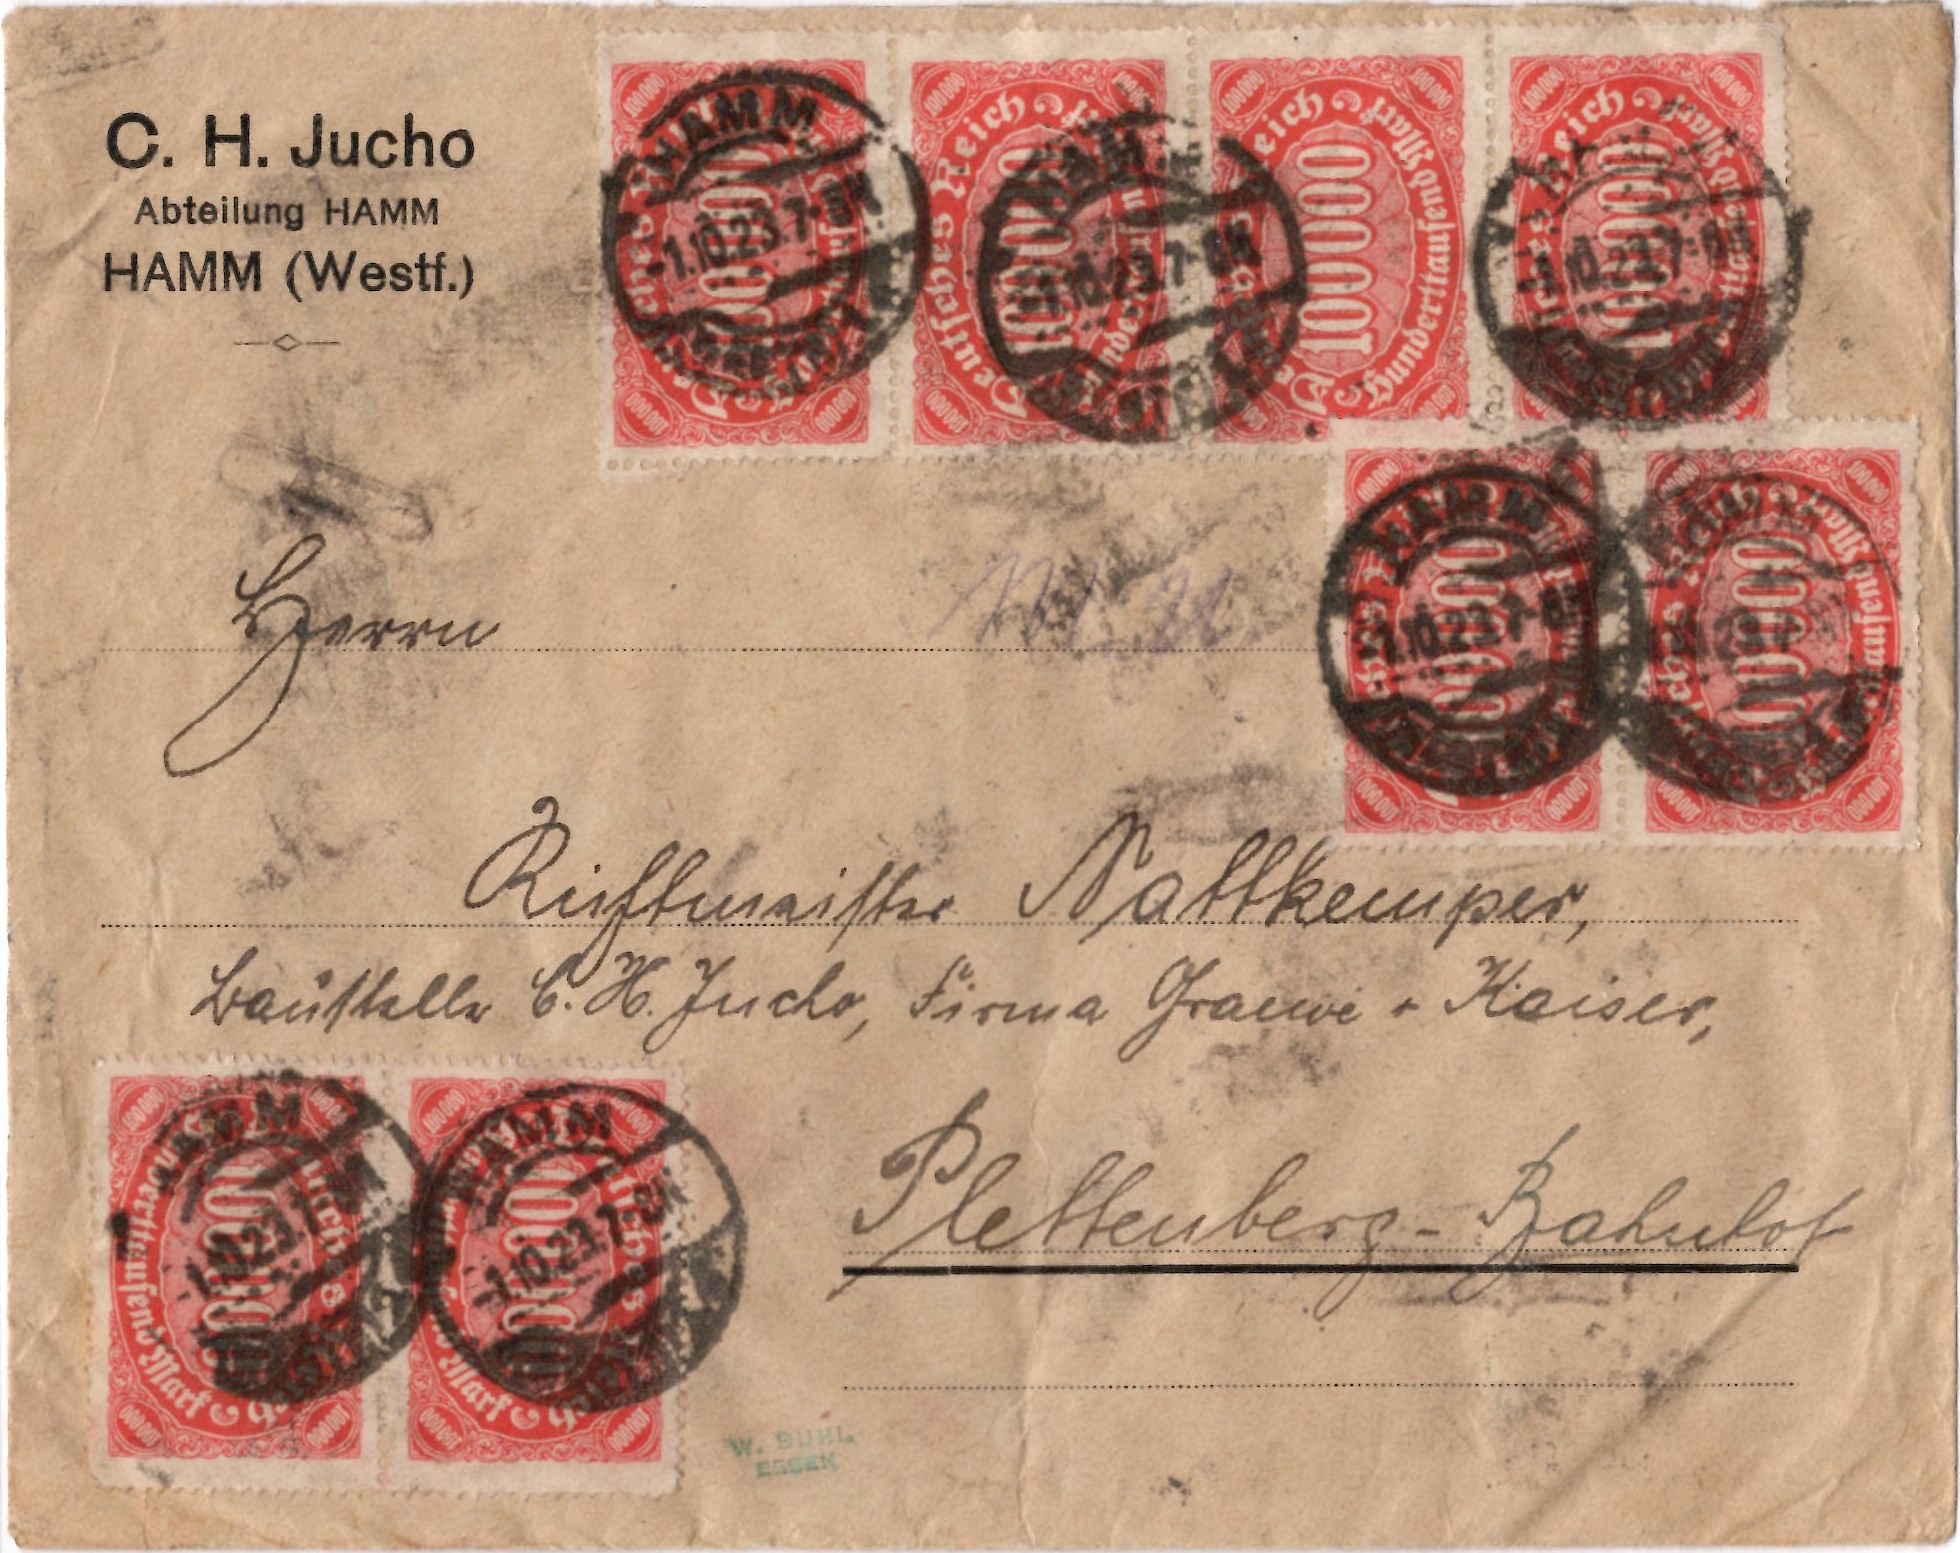 C. H. Jucho
Abteilung HAMM
HAMM (Westf.)
Deutsches Reich
100000
Hunderttausend Mark
HAMM
-1.10.23.7-8V
Herrn
Richtmeister Nattkemper,
Baustelle C. H. Jucho, Firma Graewe + Kaiser,
Plettenberg - Bahnhof
W. BUHL
ESSEN